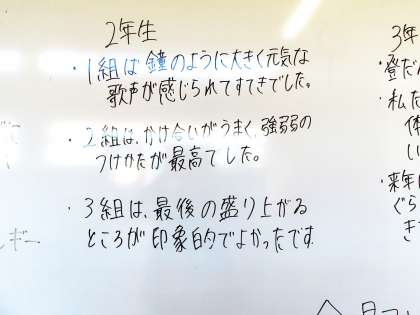 2年生
・1組は鐘のように大きく元気な
歌声が感じられてすてきでした。
・2組は、かけ合いがうまく、強弱の
つけかたが最高でした。
・3組は、最後の盛り上がる
ところが印象的でよかったです
3年
・登だ
・私た
体
い
・来年
ぐら
き
ルギー